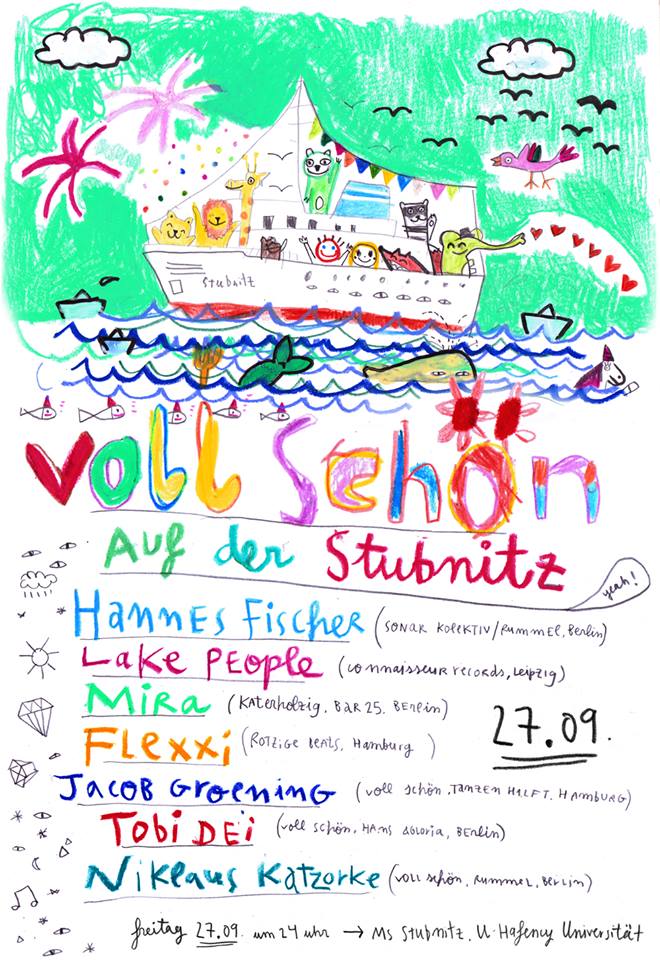 Stubnitz
voll Schön
Auf der Stubnitz
yeah!
Hannes Fischer (SONAR KOLEKTIV/RUMMEL, Berlin)
Lake People (connaisseur records, Leipzig)
Mira (KATERHOLZIG, BAR 25, BERLIN)
Flexxi (ROTZIGE BEATS, HAMBURG)
27.09.
Jacob Groening (voll schön, TANZEN HILFT, HAMBURG)
Tobi Dei (voll schön, HANS &GLORIA, BERLIN)
Niklaus Katzorke (voll schön, RUMMEL, BERLIN)
freitag 27.09. um 24 uhr → MS Stubnitz, U Hafency Universität